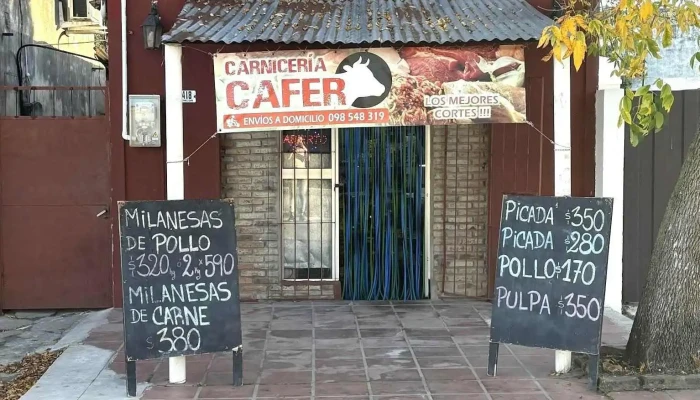 CARNICERÍA
CAFER
ENVÍOS A DOMICILIO 098 548 319
LOS MEJORES
CORTES !!!
ABIERTO
MILANESAS
DE POLLO
$320 kg ó 2 kg x 590
MILANESAS
DE CARNE
$ 380
PICADA $350
PICADA $280
POLLO $170
PULPA $350